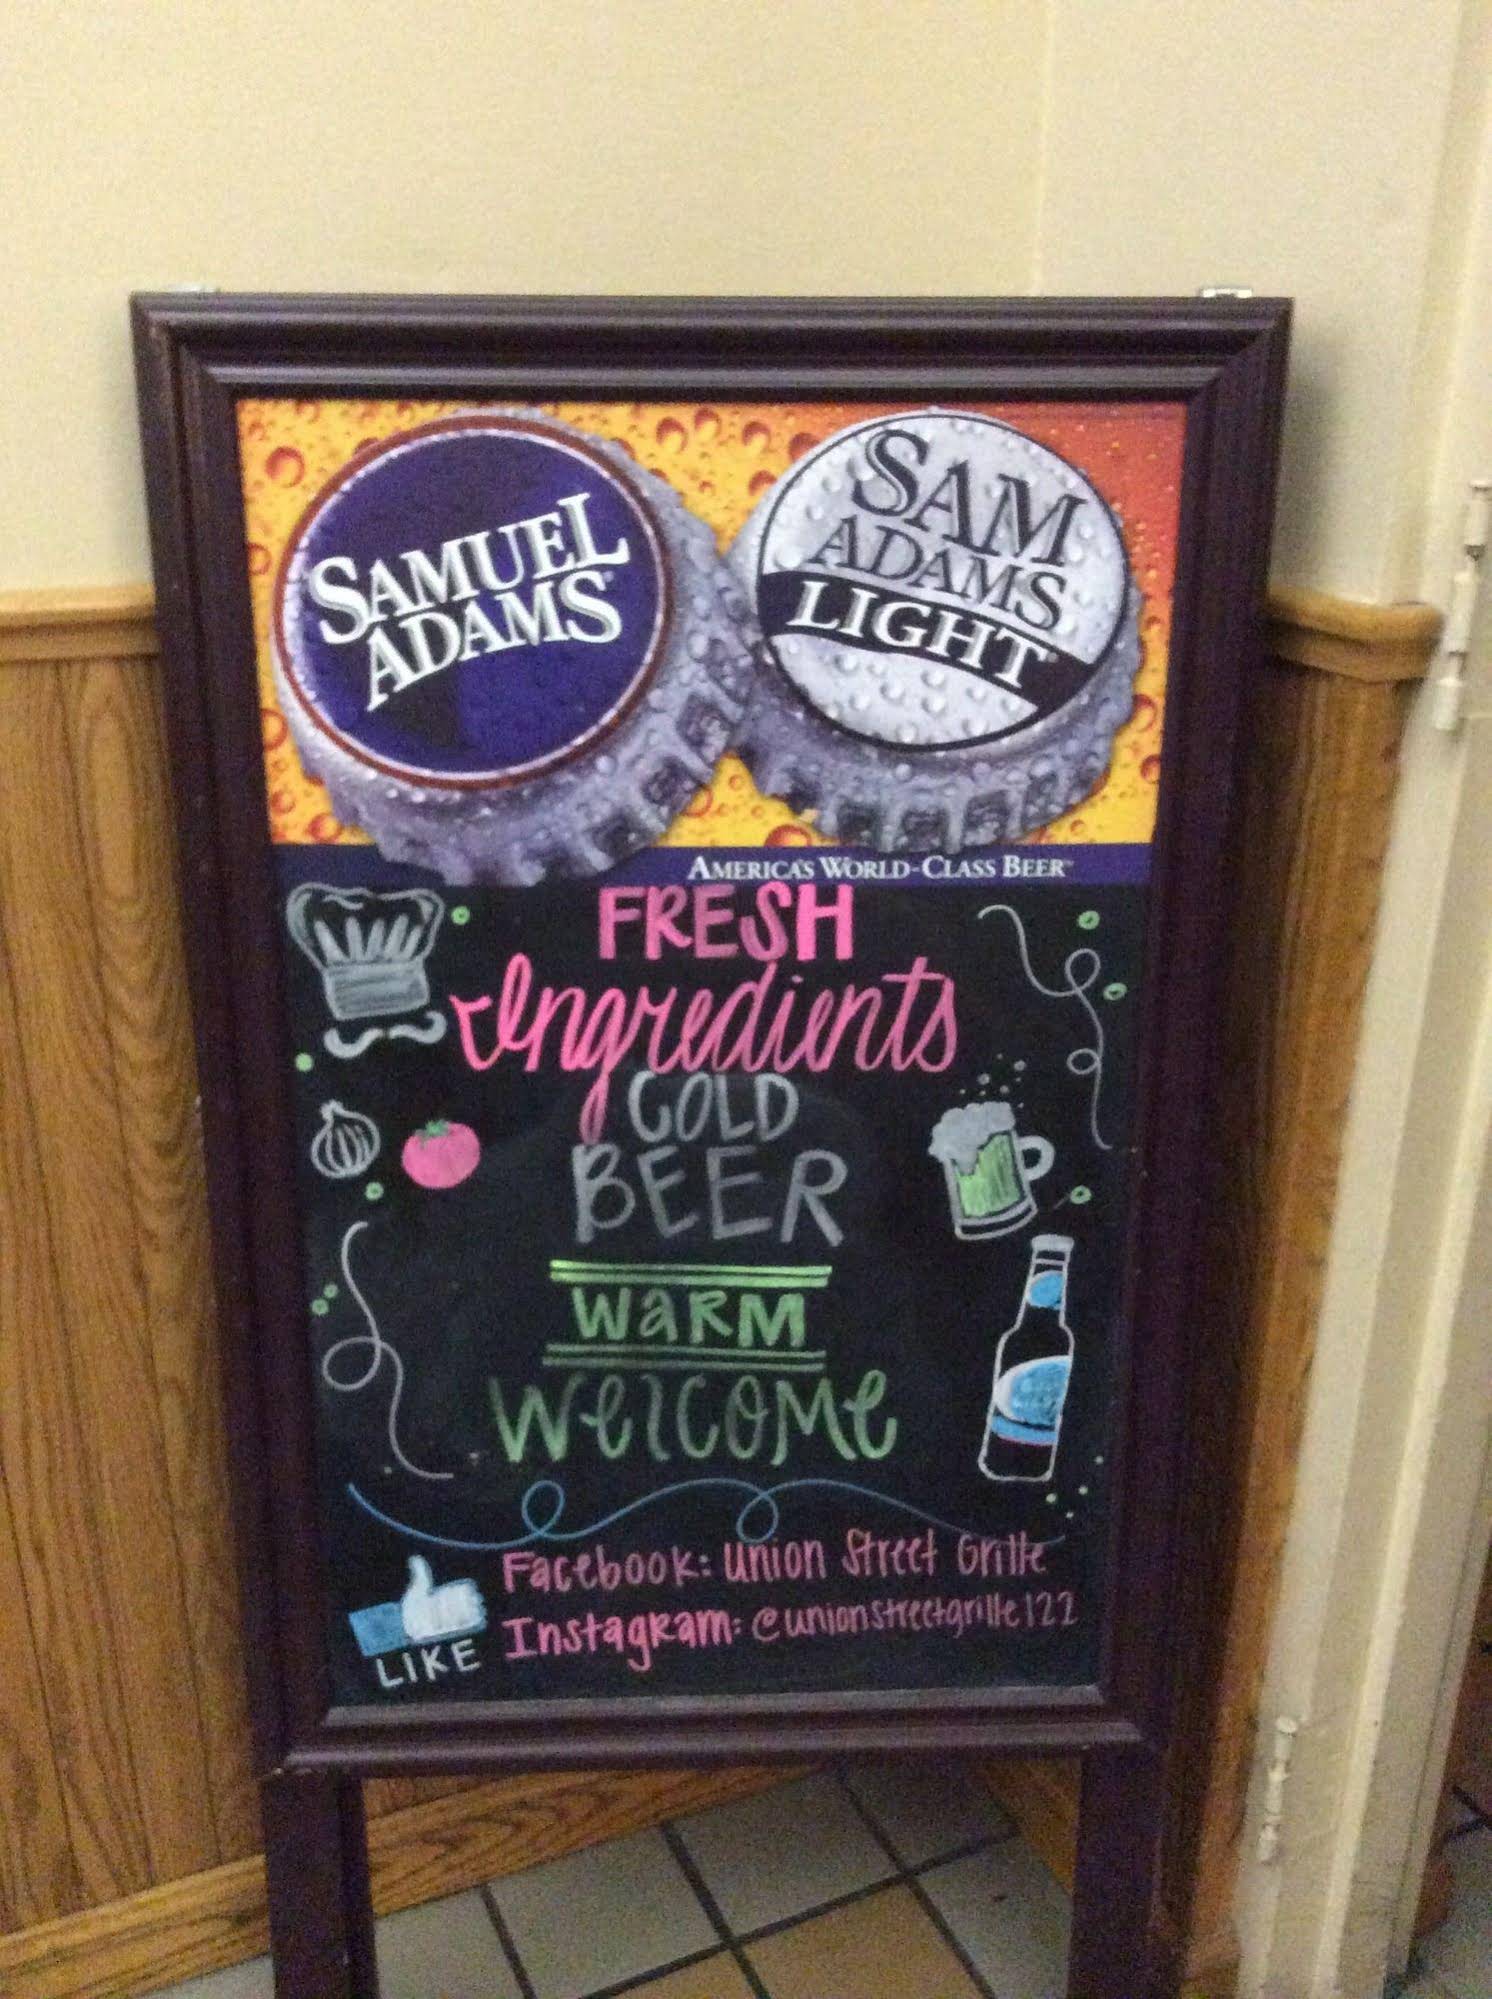 SAMUEL
ADAMS®
SAM
ADAMS
LIGHT®
AMERICA'S WORLD-CLASS BEER™
FRESH
Ingredients
COLD
BEER
WaRM
WelCOMe
Facebook: Union Street Grille
Instagram: @unionstreetgrille122
LIKE